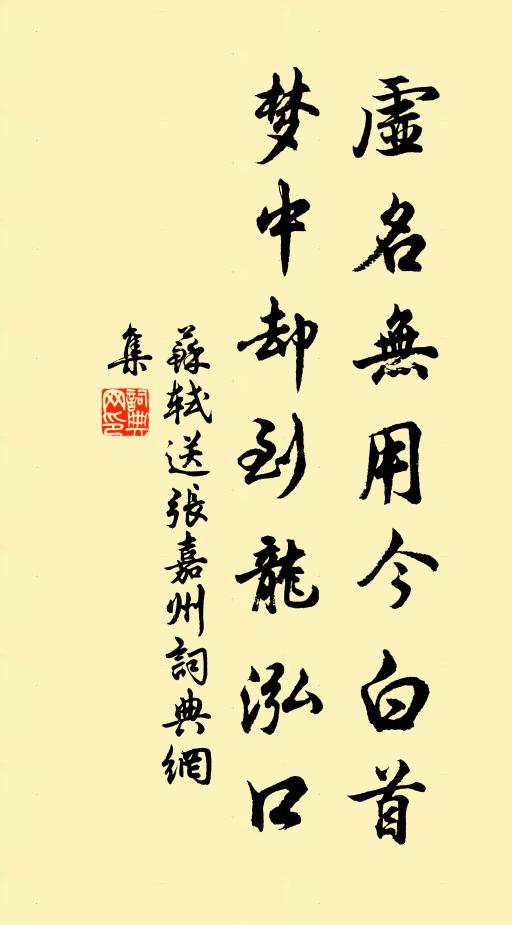 虛名無用今白首
梦中却到龍泓口
蘇軾送張嘉州詞典網
集
詞典
网印